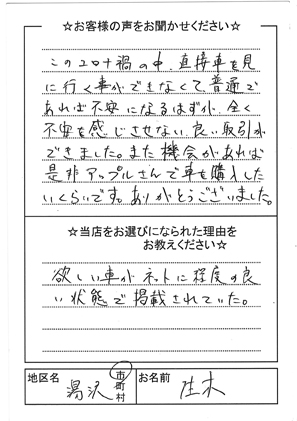 ☆お客様の声をお聞かせください☆
このコロナ禍の中、直接車を見
に行く事ができなくて、普通で
あれば不安になるはずが、全く
不安を感じさせない良い取引が
できました。また機会があれば
是非アップルさんで車を購入した
いくらいです。ありがとうございました。
☆当店をお選びになられた理由を
お教えください☆
欲しい車がネットに程度の良
い状態で掲載されていた。
地区名
湯沢
市
町
村
お名前
佐木